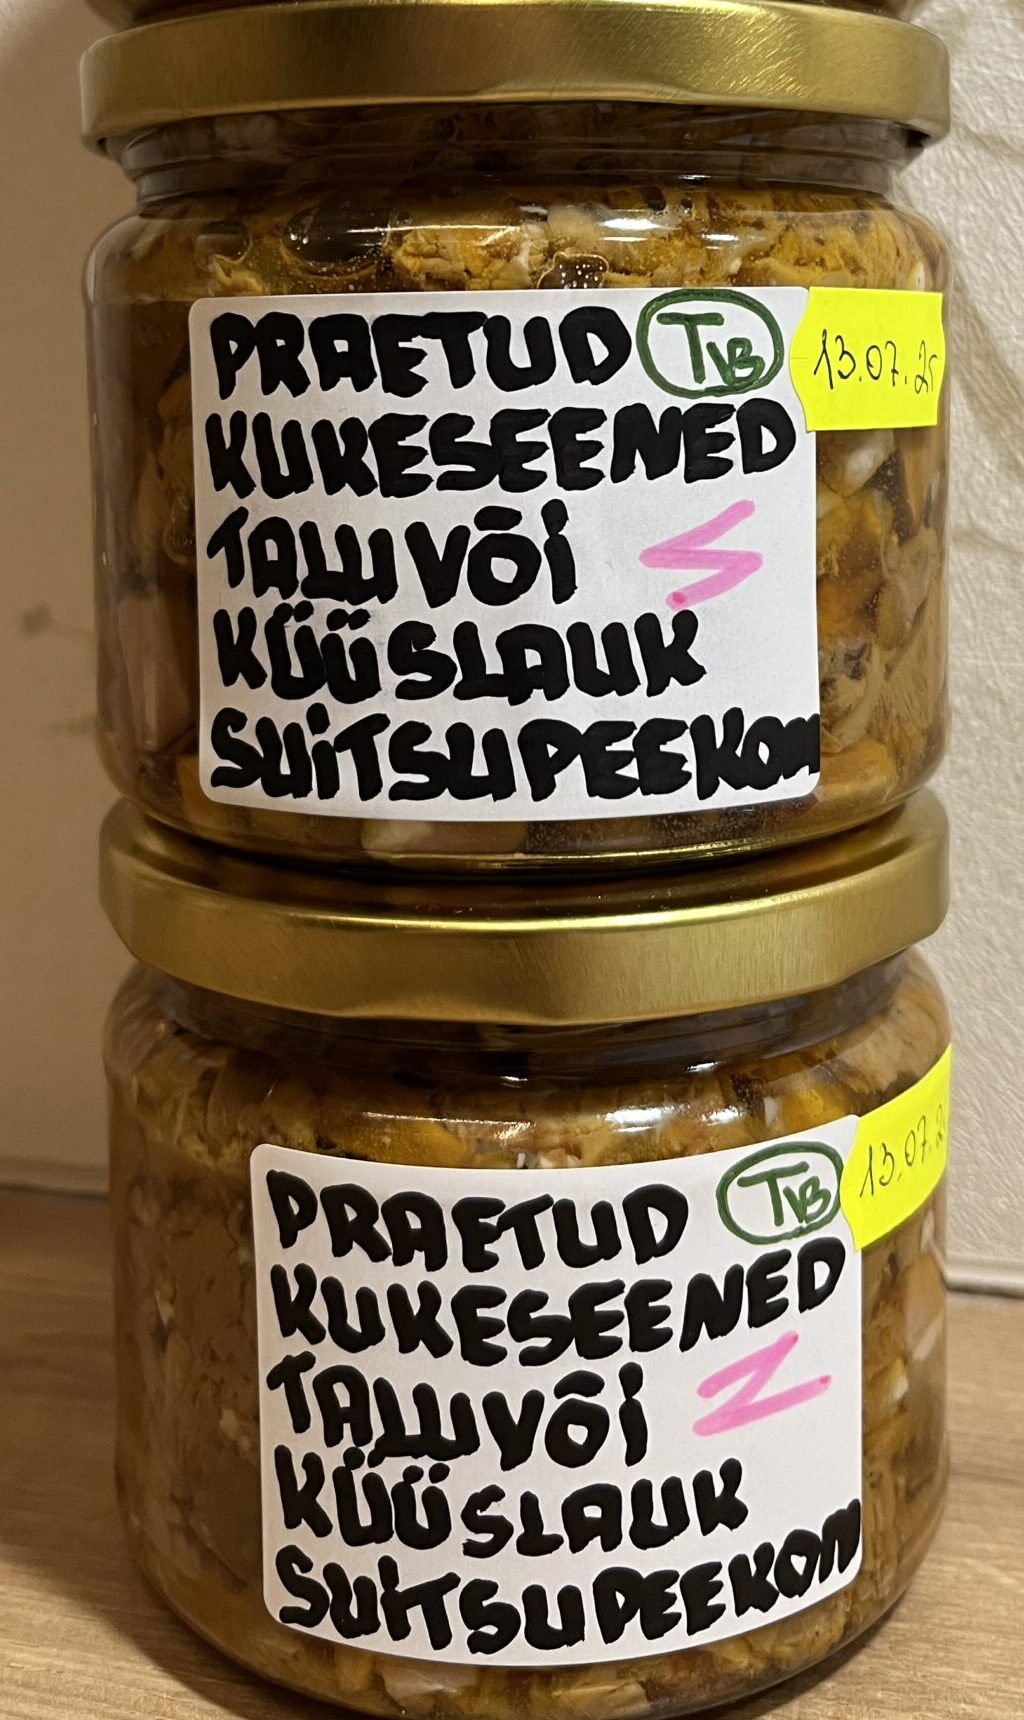 PRAETUD TVB 13.07.25
KUKESEENED
TALUVÕI
KÜÜSLAUK
SUiTSUPEEKON
PRAETUD TVB 13.07.2
KUKESEENED
TALUVÕI
KÜÜSLAUK
SUiTSUPEEKON